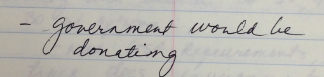 - government would be
donating